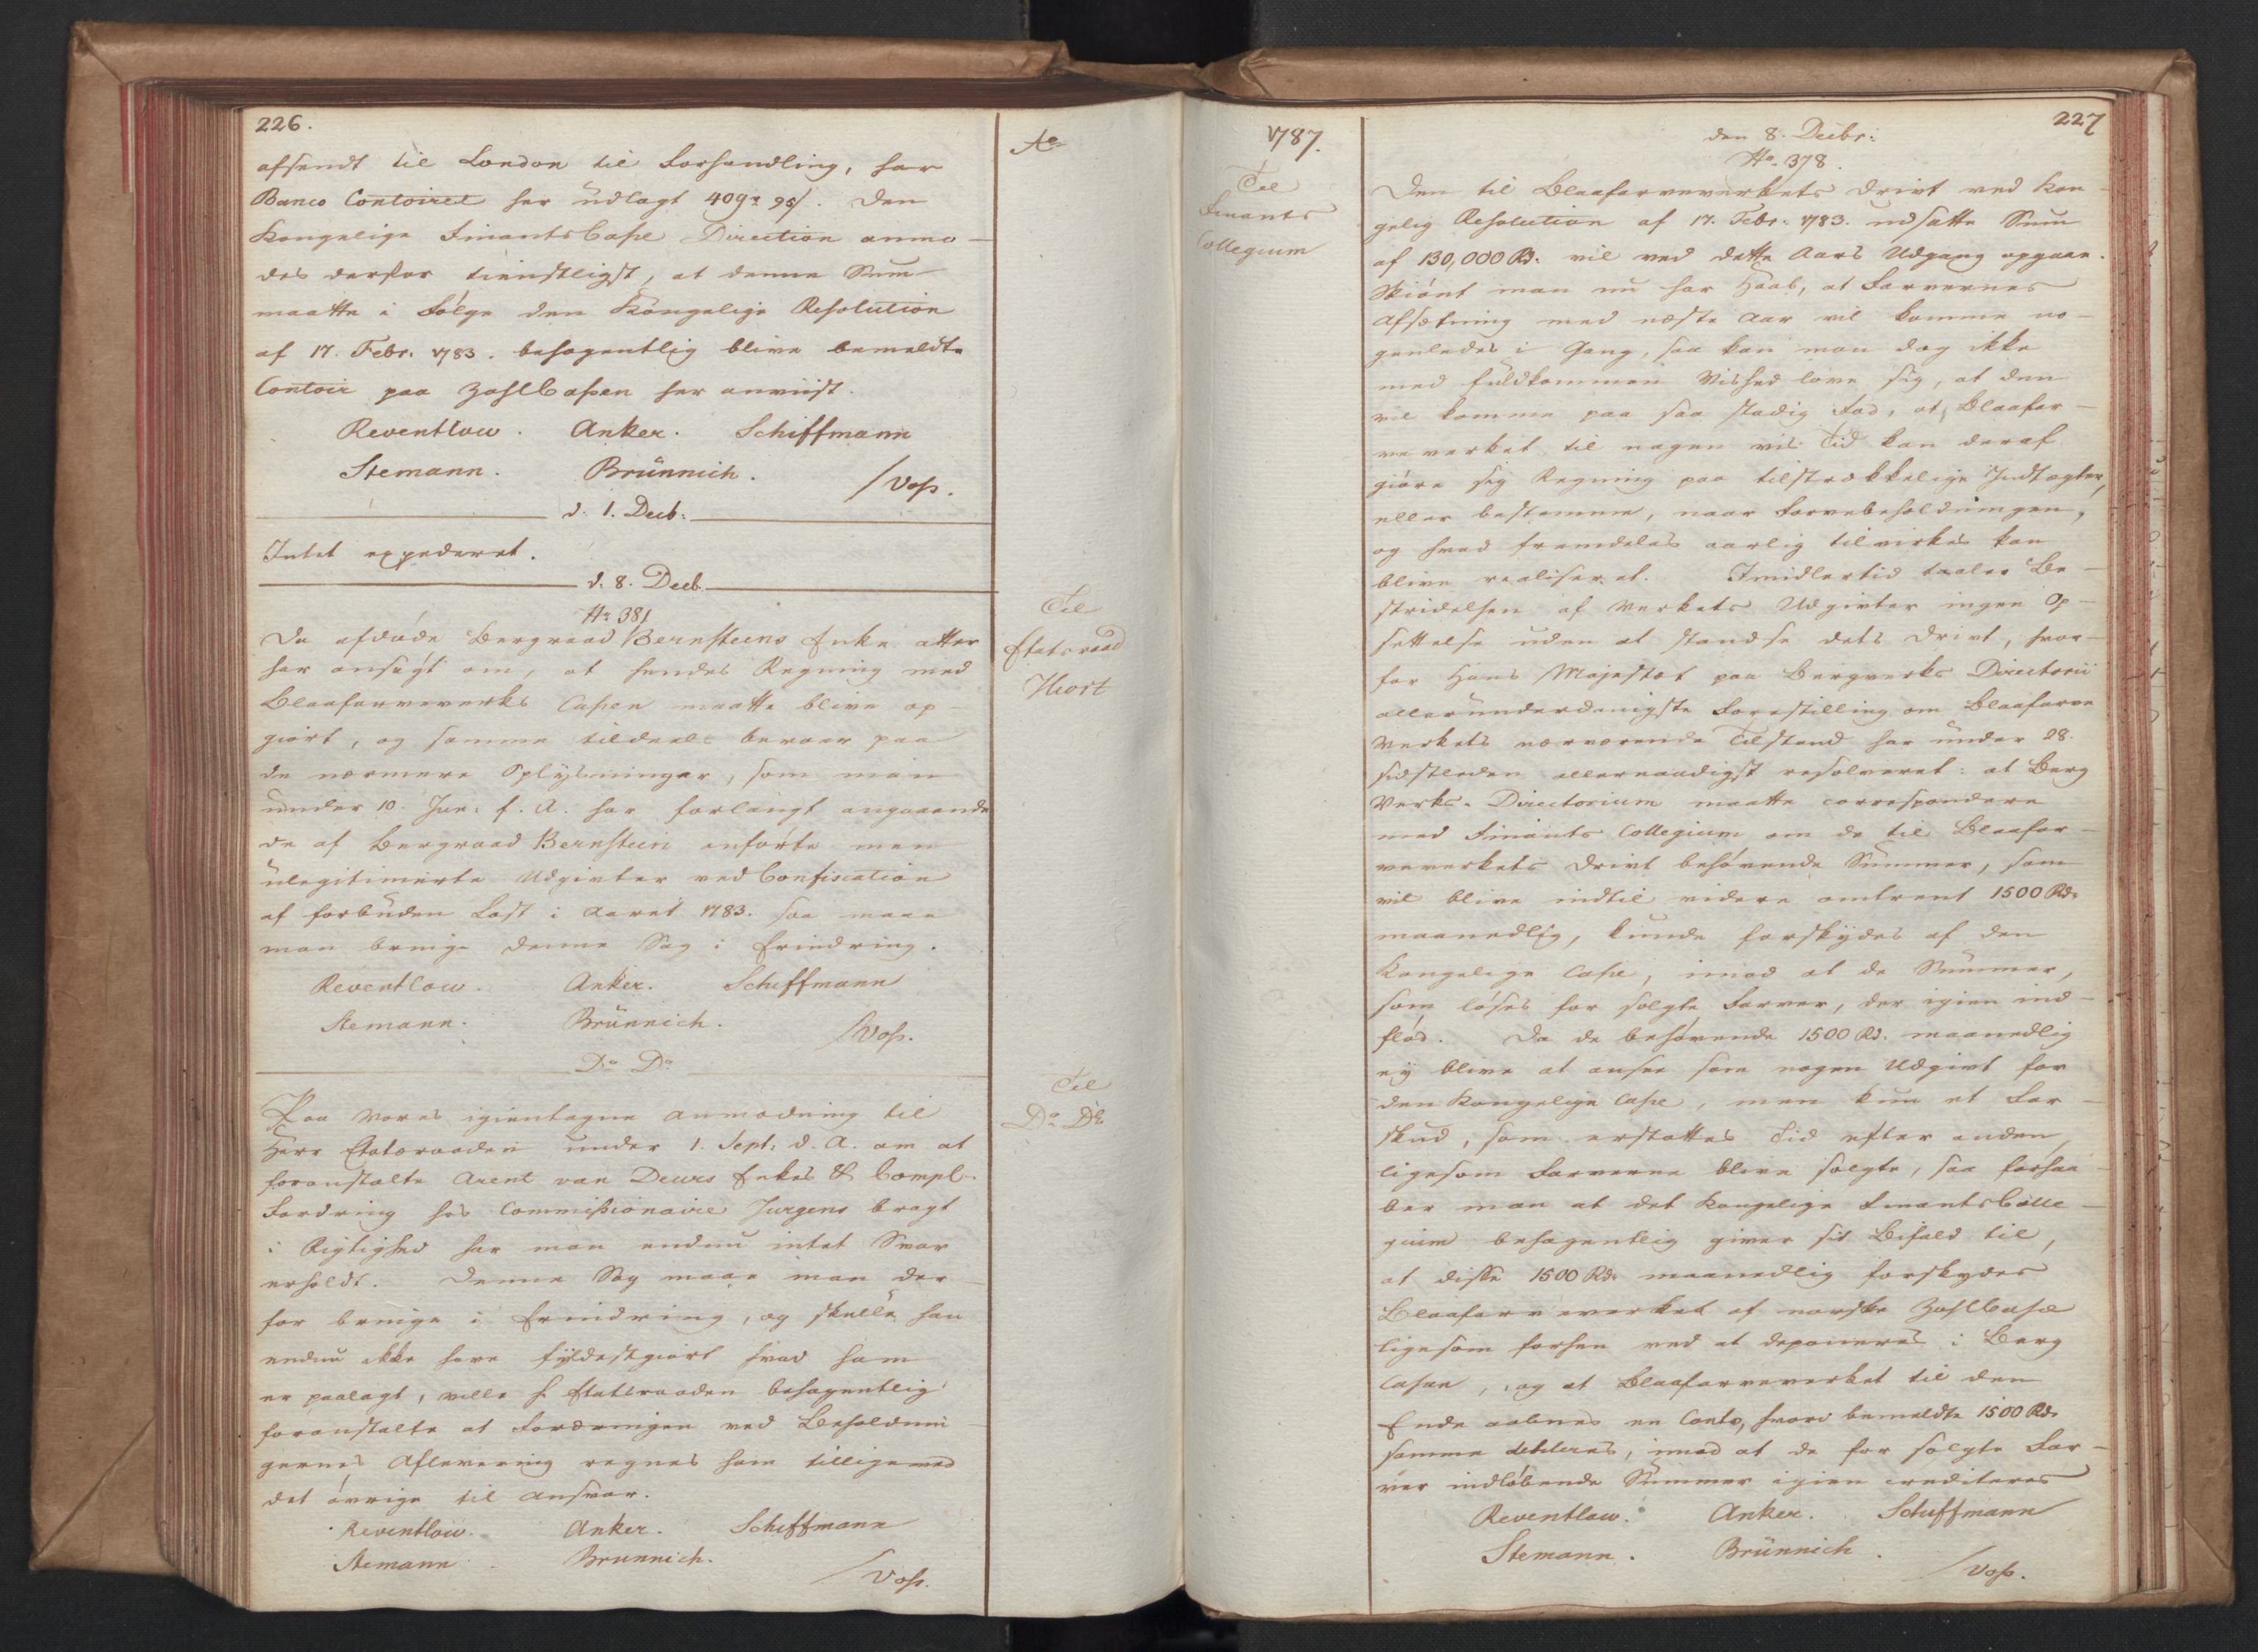 226.
afsendt til London til Forhandling, har
Banco Contoiret her udlagt 409 r 95/. Den
Kongelige FinantsCasse Direction anmo-
des derfor tienstligst, at denne Sum
maatte i Følge den Kongelige Resolution
af 17. Febr. 1783. behagentlig blive bemeldte
Contoir paa ZahlCassen her anviist.
Reventlow. Anker. Schiffmann
Stemann. Brünnich. /Voss.
d. 1. Decb:
Intet expederet.
d. 8. Decb.
No 381
Da afdøde Bergraad Bernsteens Enke atter
har ansøgt om, at hendes Regning med
Blaafarveverks Cassen maatte blive op-
giort, og samme tildeels beroer paa
de nærmere Oplysninger, som man
under 10. Jun: f. A. har forlangt angaaende
de af Bergraad Bernsteen anførte men
ulegitimerte Udgivter ved Confiscation
af forbuden Last i Aaret 1783. saa maae
man bringe denne Sag i Erindring.
Reventlow. Anker. Schiffmann
Stemann. Brünnich. /Voss.
Do Do
Paa vores igientagne Anmodning til
Herr Etatsraaden under 1. Sept: d. A. om at
foranstalte Arent van Deurs Enkes & Compl.
Fordring hos Commissionaire Jurgens bragt
i Rigtighed har man endnu intet Svar
erholdt. Denne Sag maae man der-
for bringe i Erindring, og skulle han
endnu ikke have fyldestgiort hvad ham
er paalagt, ville H. Etatsraaden behagentlig
foranstalte at Fordringen ved Beholdnin-
gernes Aflevering regnes ham tilligemed
det øvrige til Ansvar.
Reventlow. Anker. Schiffmann
Stemann. Brunnich.
/Voss.
Ao
Til
Etatsraad
Hiort
Til
Do Do
1787.
Til
Finants
Collegium
227
den 8. Decbr:
No. 378.
Den til Blaafarveverkets Drivt ved Kon-
gelig Resolution af 17. Febr. 1783. udsatte Sum
af 130,000 Rd. vil ved dette Aars Udgang opgaae.
Skiønt man nu har Haab, at Farvernes
Afsætning med næste Aar vil komme no-
genledes i Gang, saa kan man dog ikke
med fuldkommen Vished love sig, at den
vil komme paa saa stadig Fod, at Blaafar-
veverket til nogen vis Tid kan deraf
giøre sig Regning paa tilstrækkelige Indtægter,
eller bestemme, naar Farvebeholdningen,
og hvad fremdeles aarlig tilvirkes kan
blive realiseret. Imidlertid taaler Be-
stridelsen af Verkets Udgivter ingen Op-
settelse uden at standse dets Drivt, hvor-
for Hans Majestæt paa Bergverks Directorii
allerunderdanigste Forestilling om Blaafarve
Verkets nærværende Tilstand har under 28.
sidstleden allernaadigst resolveret: at Berg
Verks-Directorium maatte correspondere
med Finants Collegium om de til Blaafar-
veverkets Drivt behøvende Summer, som
vil blive indtil videre omtrent 1500 Rd.
maanedlig, kunde forskydes af den
Kongelige Casse, imod at de Summer,
som løses for solgte Farver, der igien ind-
flød. Da de behøvende 1500 Rd. maanedlig
ey blive at ansee som nogen Udgivt for
den Kongelige Casse, men kun et For-
skud, som erstattes Tid efter anden,
ligesom Farverne blive solgte, saa forhaa-
ber man at det Kongelige FinantsColle-
gium behagentlig giver sit Bifald til,
at disse 1500 Rd. maanedlig forskydes
Blaafarveverket af norske ZahlCasse
ligesom forhen ved at deponeres i Berg
Cassen, og at Blaafarveverket til den
Ende aabnes en Conto, hvori bemeldte 1500 Rd.
samme debiteres, imod at de for solgte Far-
ver indløbende Summer igien crediteres
Reventlow. Anker. Schiffmann
Stemann. Brünnich.
/Voss.